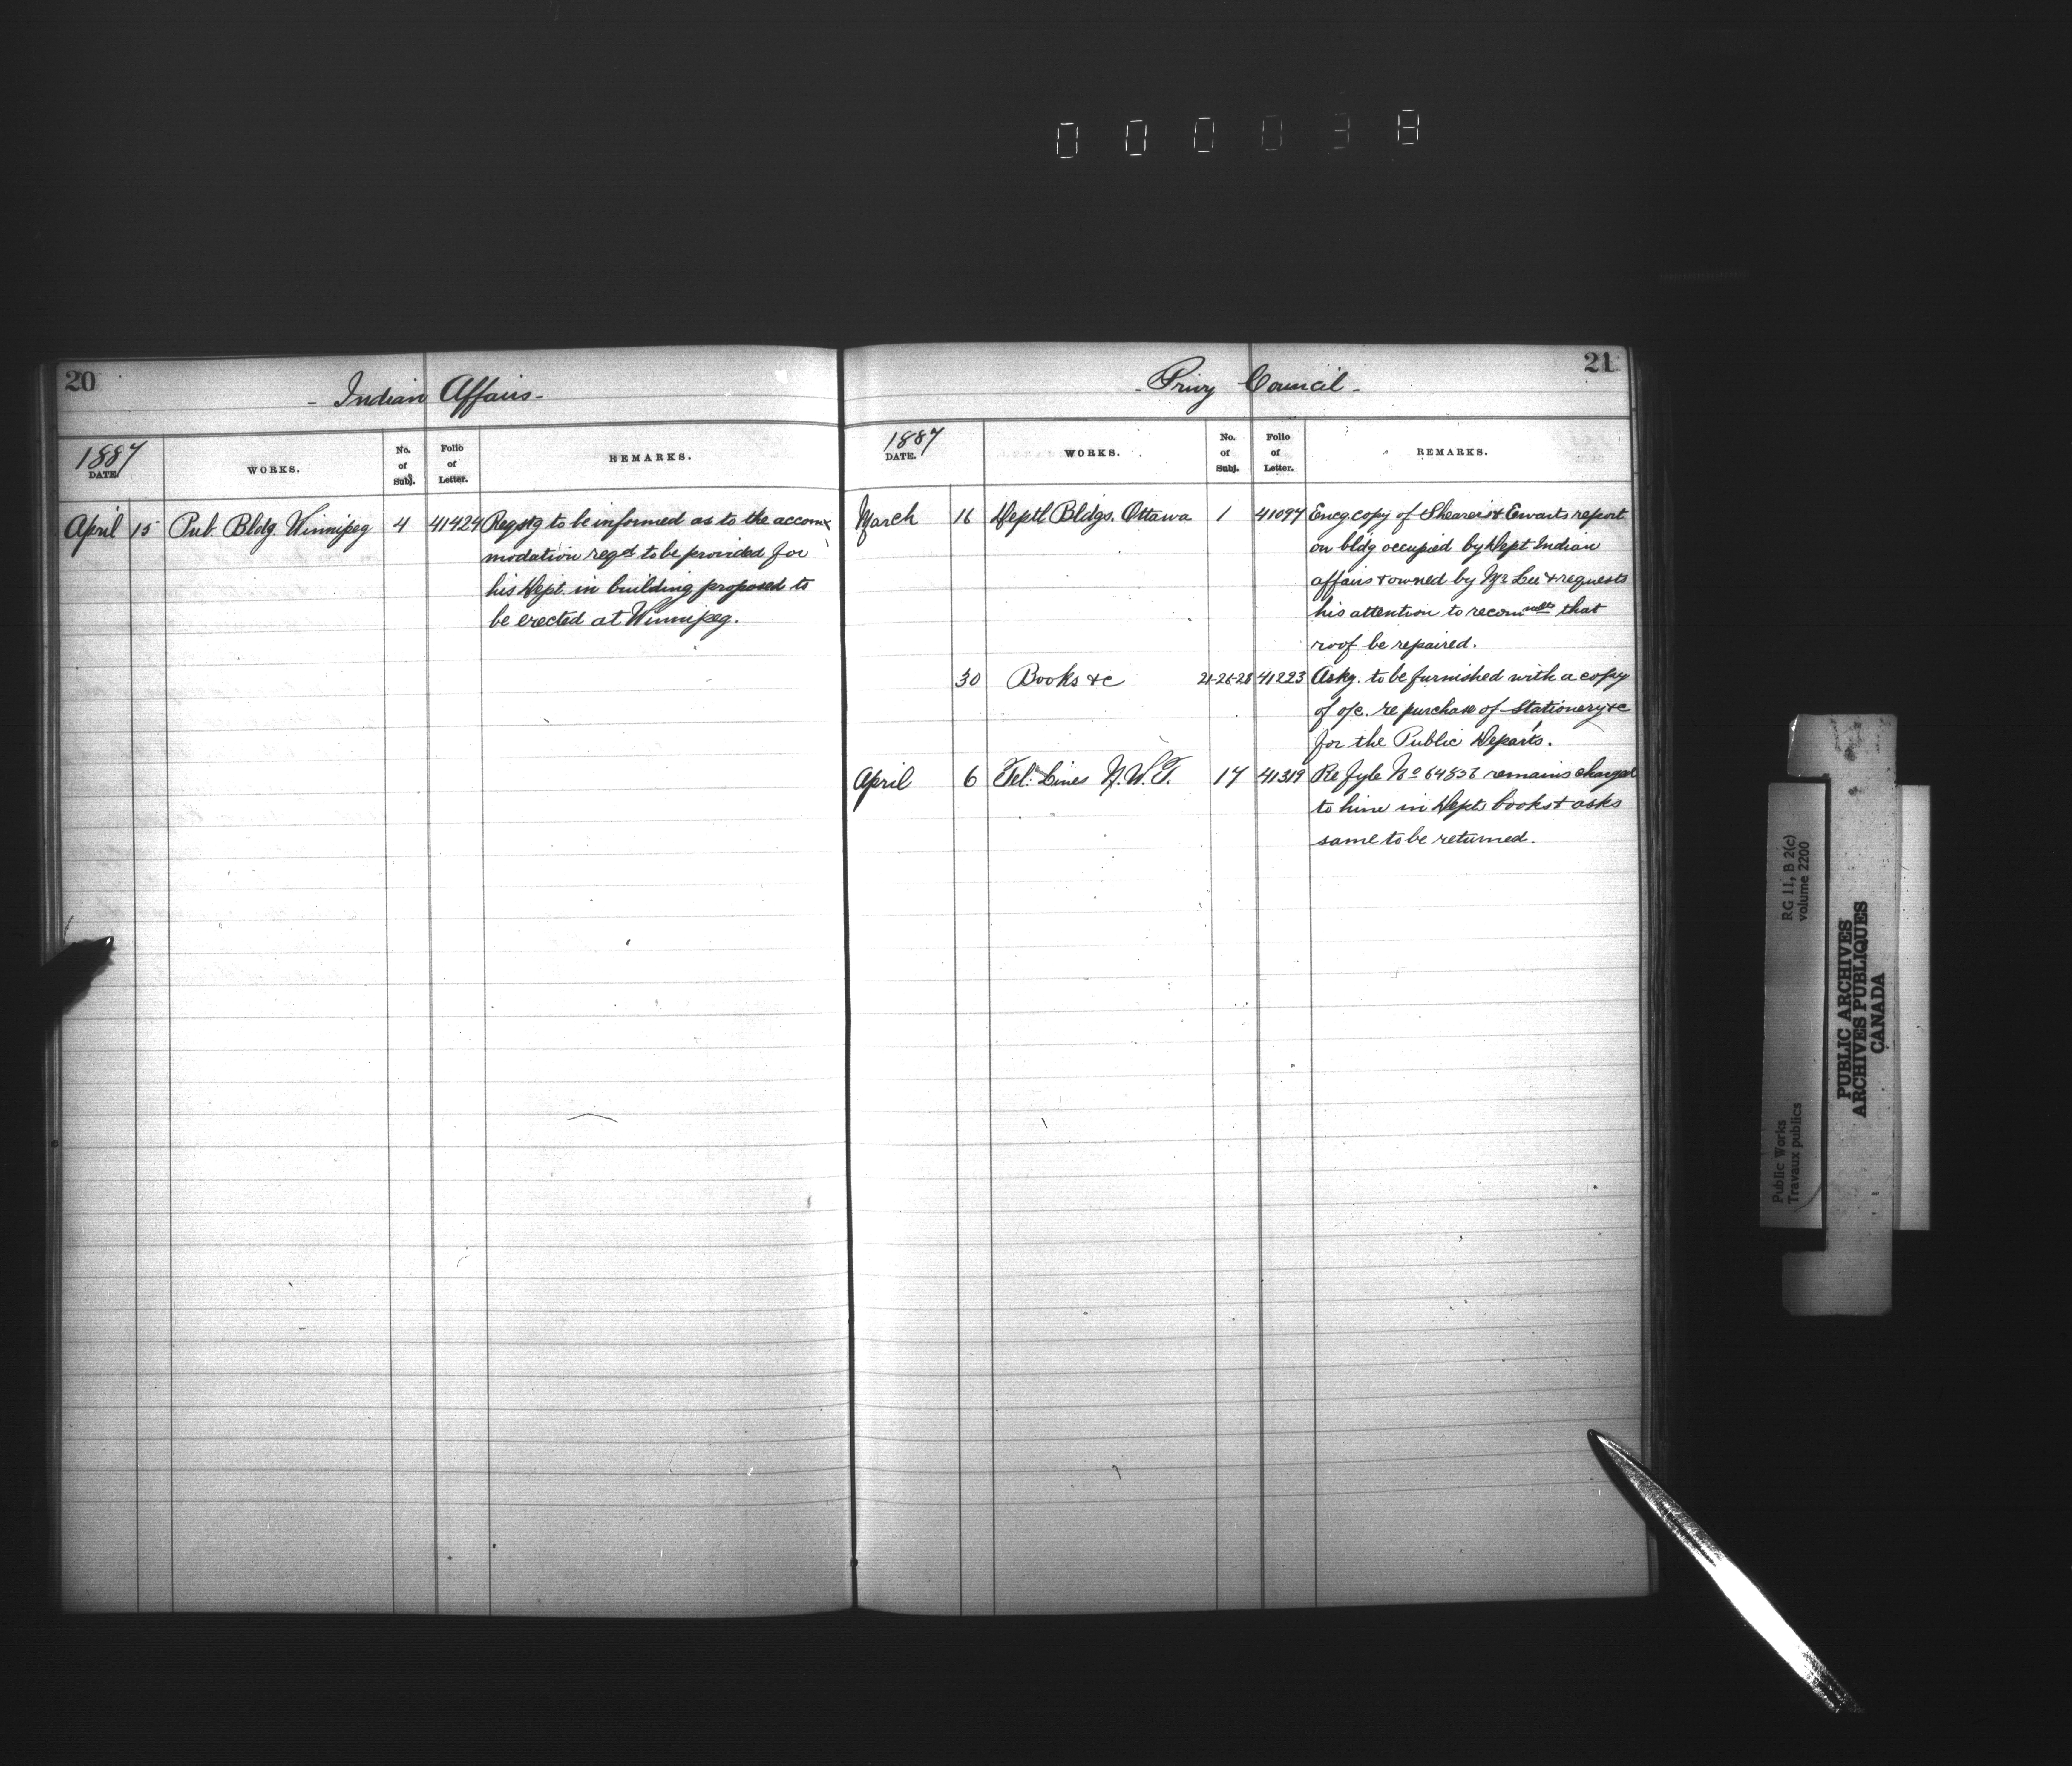 000038
20
- Indian Affairs -
1887
DATE.
WORKS.
No. of Subj.
Folio of Letter.
REMARKS.
April 15 Pub. Bldg. Winnipeg 4 41424 Reqstg to be informed as to the accom-
modation reqd to be provided for
his Dept. in building proposed to
be erected at Winnipeg.
21
- Privy Council -
1887
DATE.
WORKS.
No. of Subj.
Folio of Letter.
REMARKS.
March 16 Deptl Bldgs. Ottawa 1 41097 Encg copy of Shearer & Ewarts report
on bldg occupied by Dept Indian
affairs & owned by Mr Lee & requests
his attention to that
roof be repaired.
30 Books &c 21-26-28 41223 Askg. to be furnished with a copy
of o/c. re purchase of Stationery &c
for the Public Departs.
April 6 Tel. Lines N.W.T. 17 41319 Re fyle No 64856 remains charged
to him in Depts books & asks
same to be returned.
RG 11, B 2(c)
volume 2200
Public Works
Travaux publics
PUBLIC ARCHIVES
ARCHIVES PUBLIQUES
CANADA